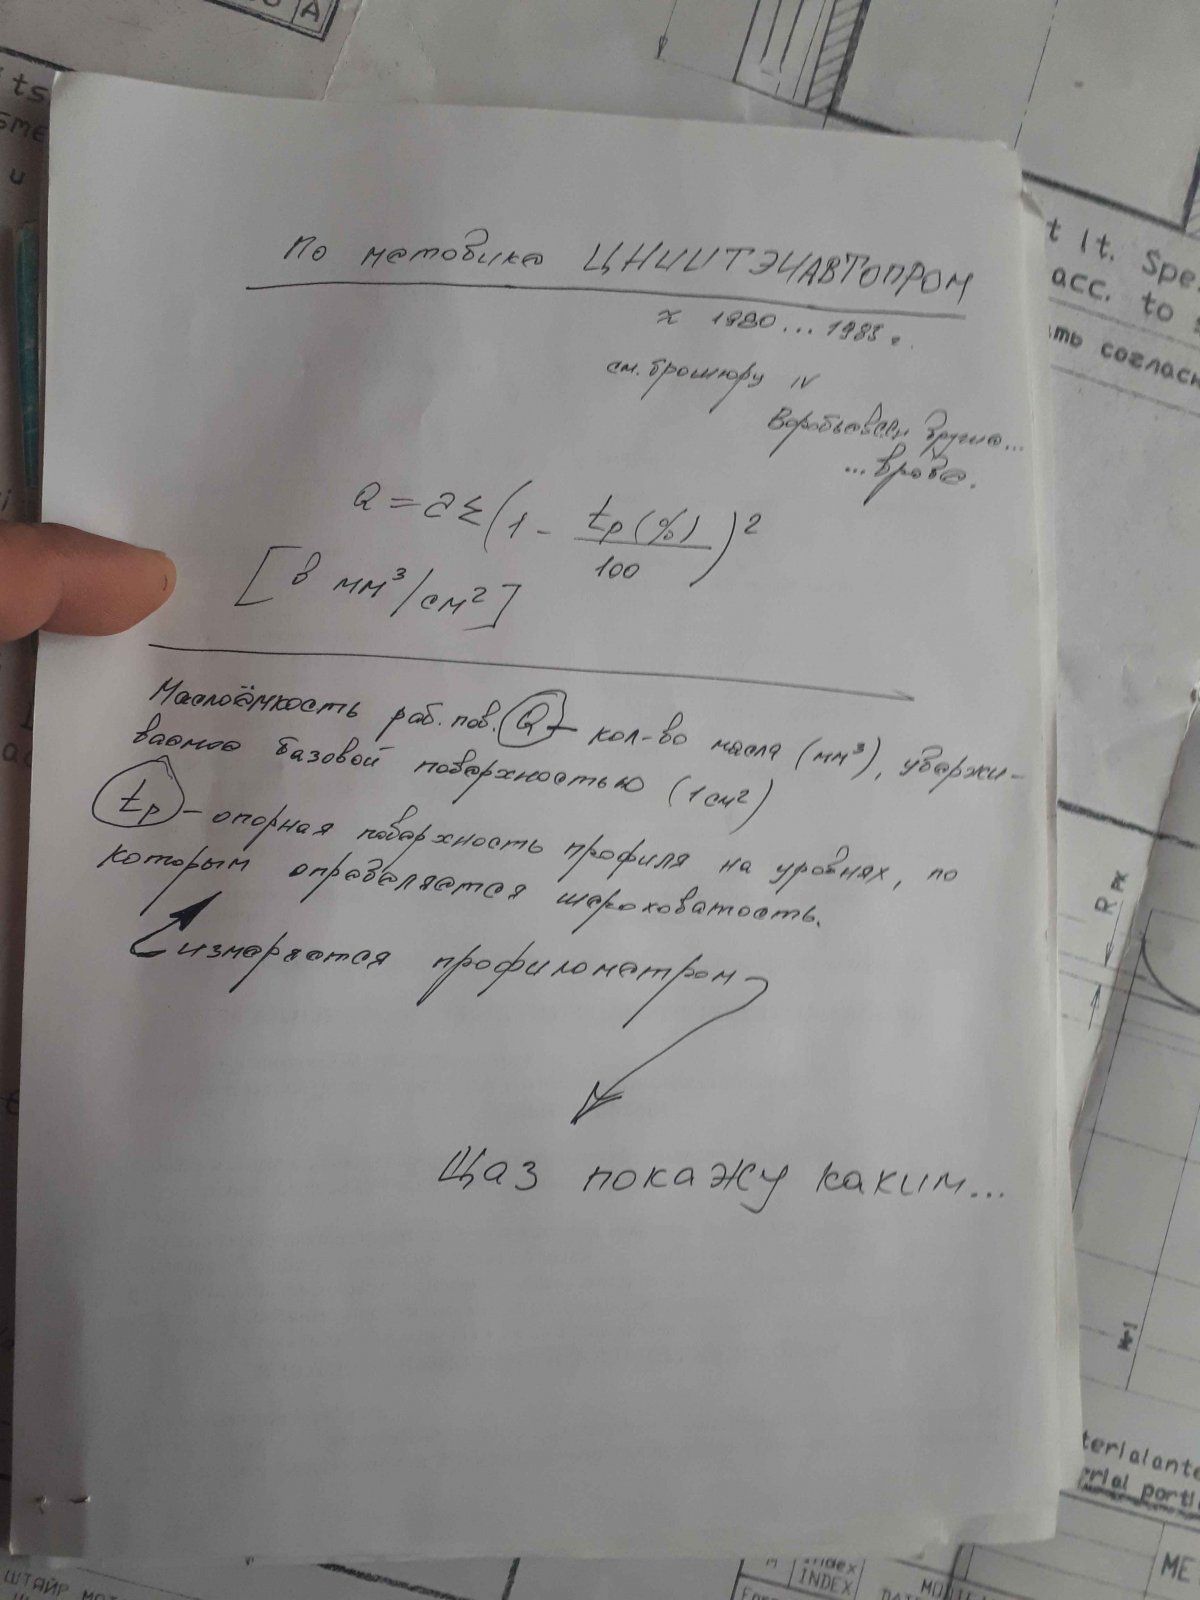 А
ts
По методике ЦНИИТЭИАВТОПРОМ
≈ 1980...1983 г.
см. брошюру IV
Воробьёвки, другие...
...вроде.
Q = 2Σ(1 - tp(%)/100)²
[в мм³/см²]
Маслоёмкость раб. пов. Q - кол-во масла (мм³), удержи-
ваемое базовой поверхностью (1см²)
tp - опорная поверхность профиля на уровнях, по
которым определяется шероховатость.
измеряется профилометром
Щаз покажу каким...
t It. Spe
acc. to
ть соглас
Rpk
terialante
erial porti
Index
INDEX
МЕ
ШТАЙР